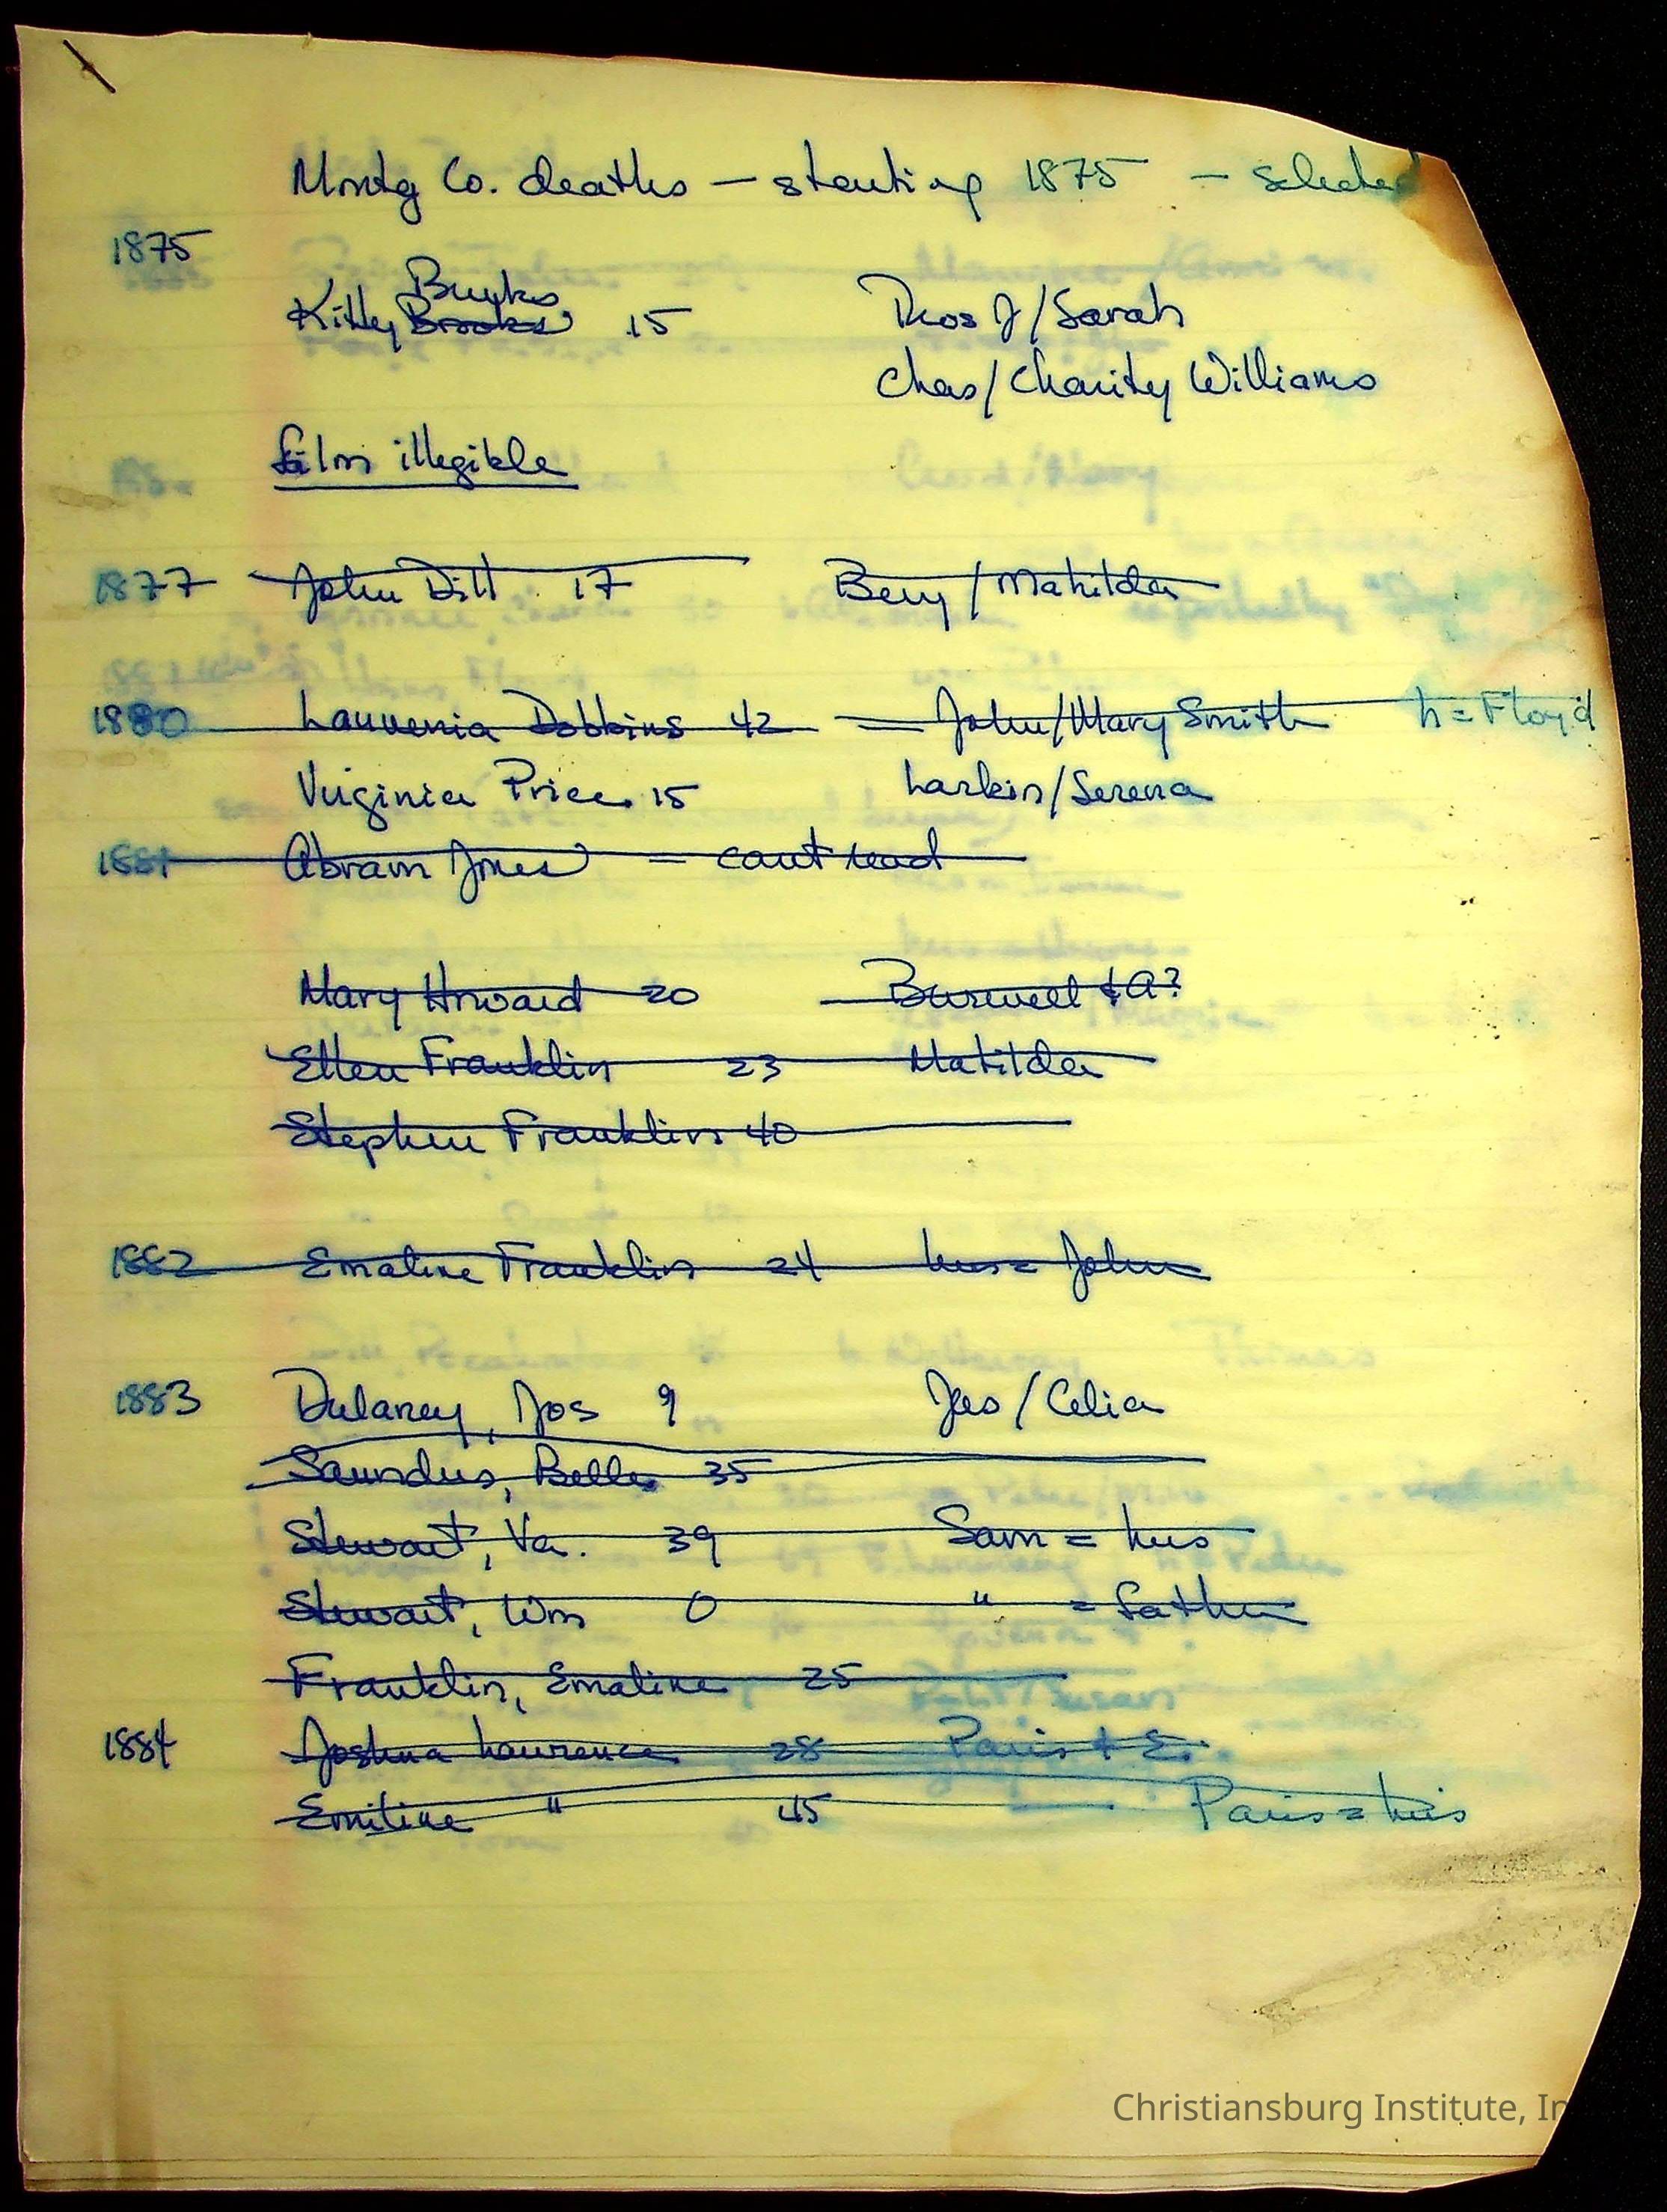 Montg Co. deaths — starting 1875 — selected
1875
Burks
Kitty Brooks 15 Thos J/Sarah
Chas/Charity Williams
film illegible
1877 John Dill 17 Beny/Matilda
1880 Lauvenia Dobbins 42 = John/Mary Smith h=Floyd
Virginia Price 15 Larkin/Serena
1881 Abram Jones = cant read
Mary Howard 20 Burwell & A?
Ellen Franklin 23 Matilda
Stephen Franklin 40
1882 Emaline Franklin 24 hus= John
1883 Dulaney, Jos 9 Jas/Celia
Saunders, Belle 35
Stewart, Va. 39 Sam = hus
Stewart, Wm 0 " = father
Franklin, Emaline 25
1884 Joshua Lawrence 28 Paris & E.
Emiline " 45 Paris = hus
Christiansburg Institute, In